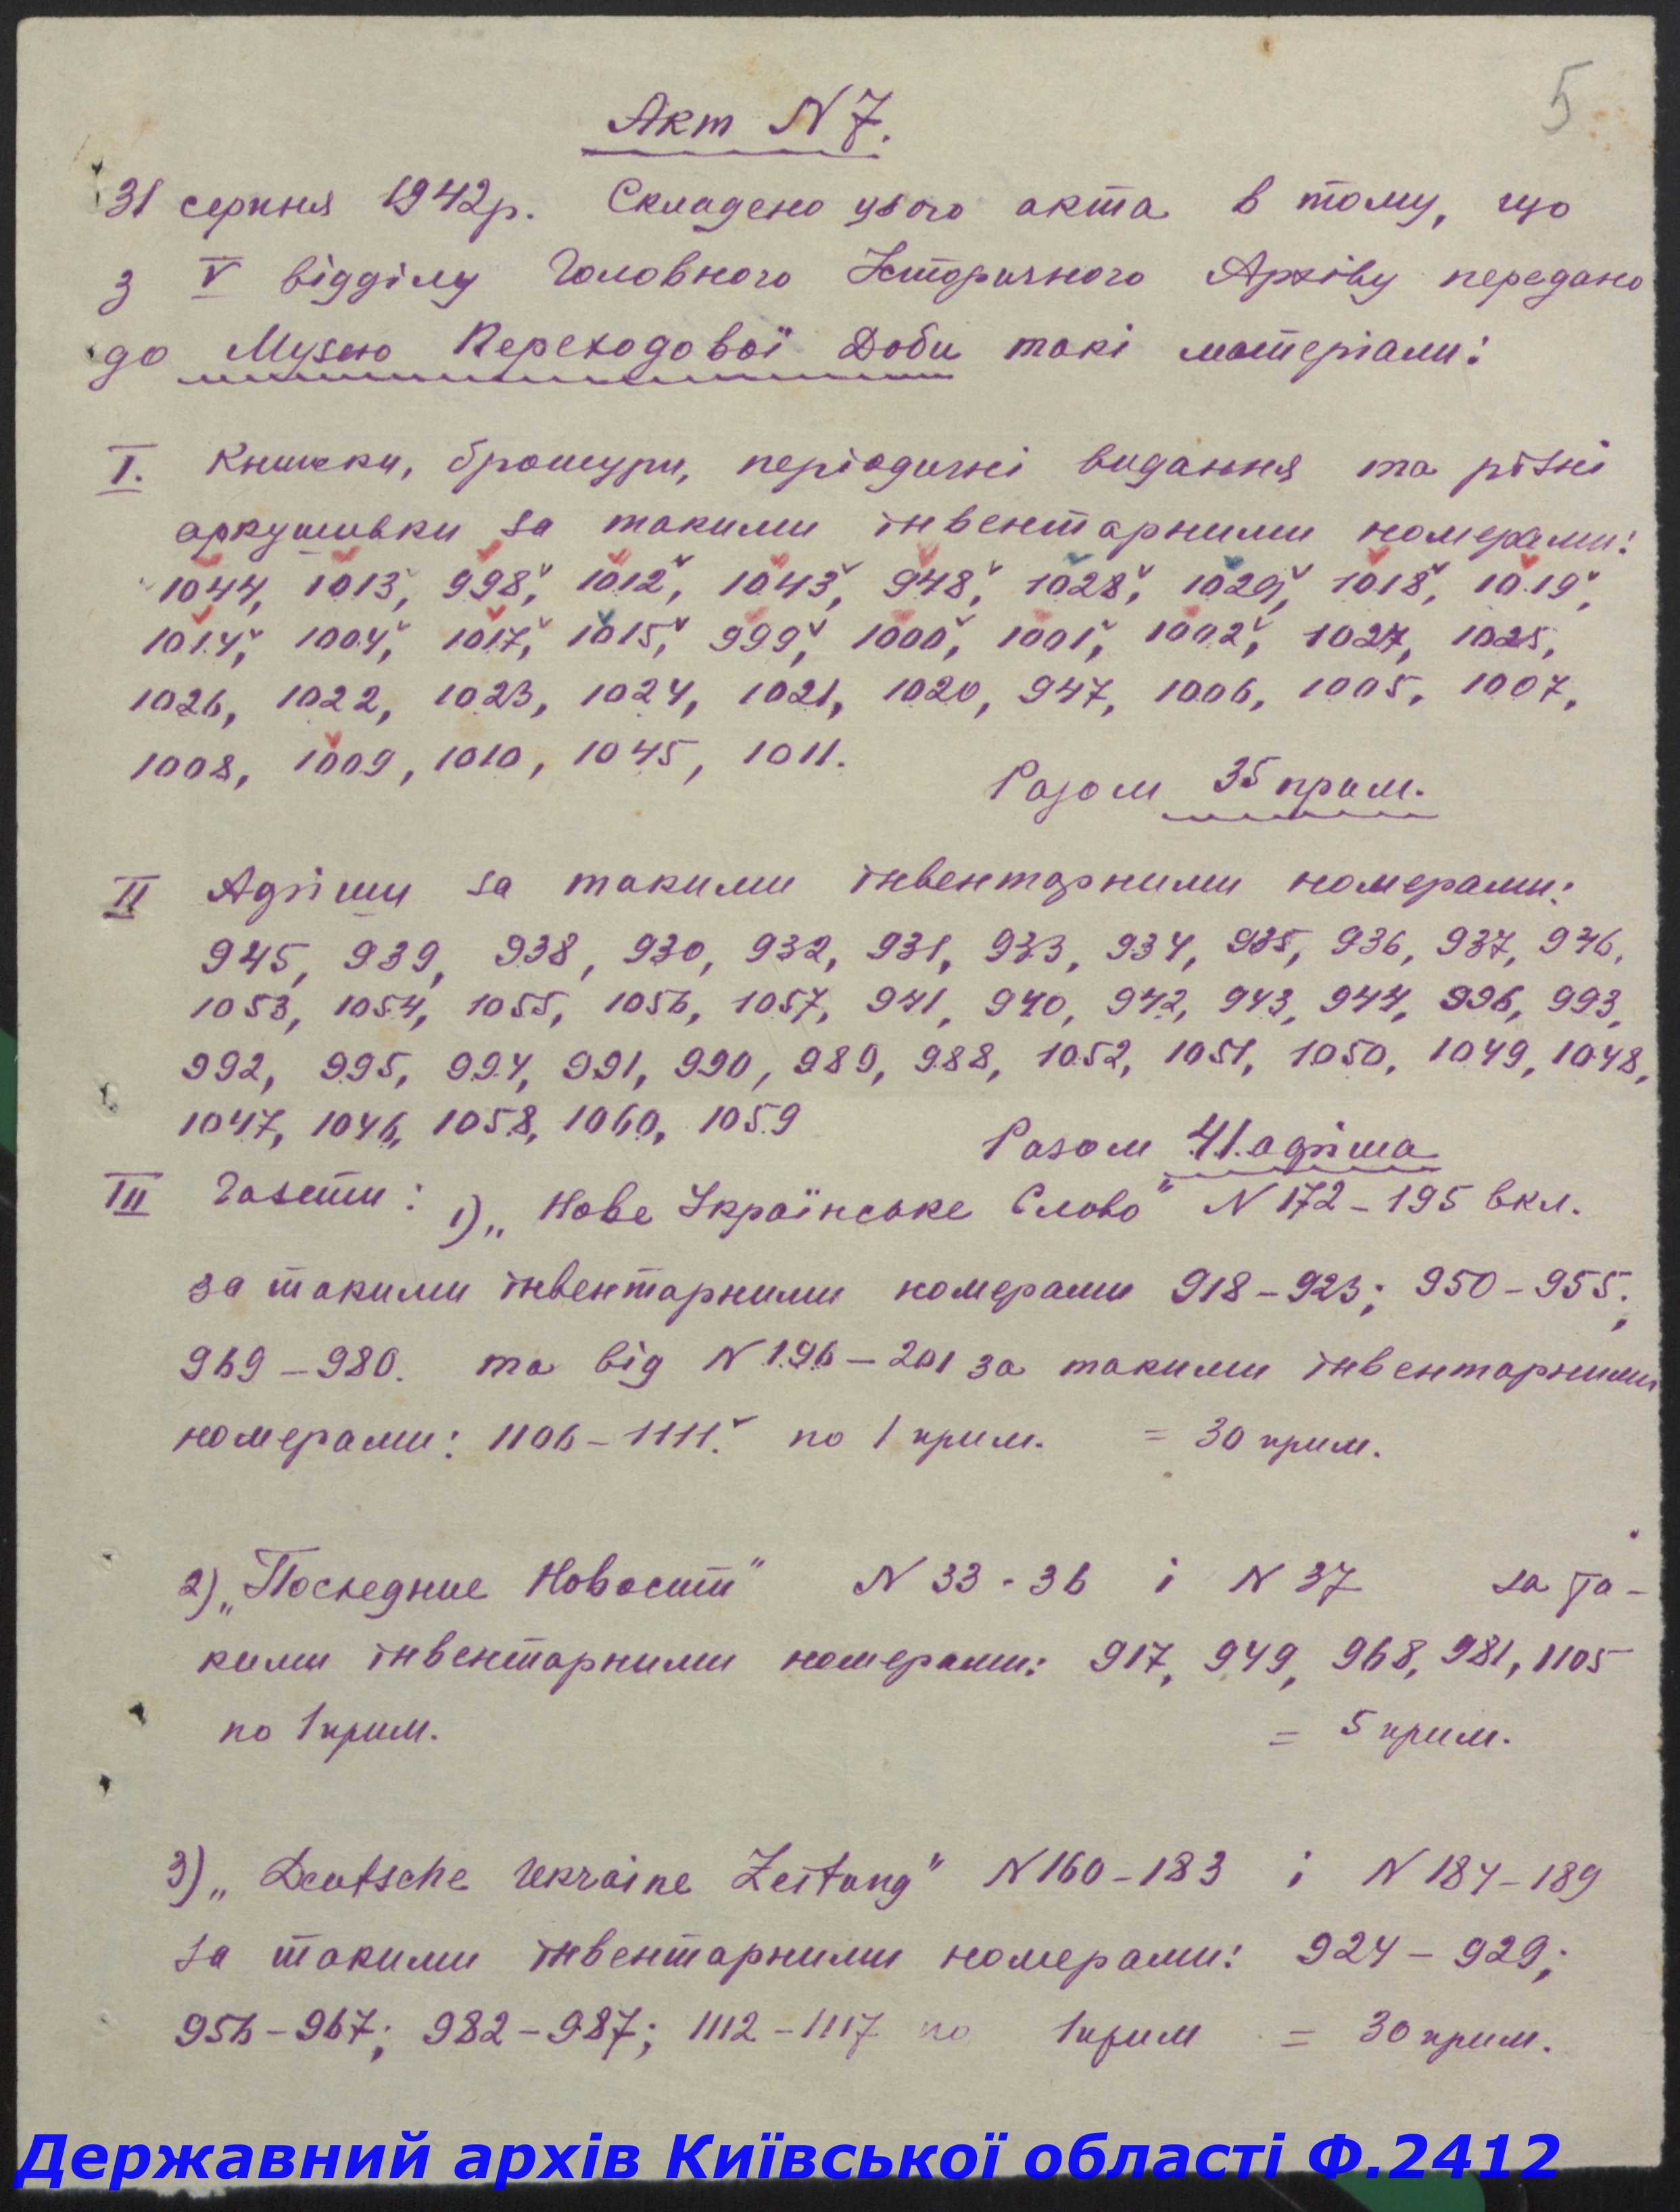 5
Акт N 7.
31 серпня 1942р. Складено цього акта в тому, що
з V відділу Головного Історичного Архіву передано
до Музею Переходової Доби такі матеріали:
I. Книжки, брошури, періодичні видання та різні
аркушивки за такими інвентарними номерами:
1044, 1013, 998, 1012, 1043, 948, 1028, 1029, 1018, 1019,
1014, 1004, 1017, 1015, 999, 1000, 1001, 1002, 1027, 1025,
1026, 1022, 1023, 1024, 1021, 1020, 947, 1006, 1005, 1007,
1008, 1009, 1010, 1045, 1011.
Разом 35 прим.
II Афіши за такими інвентарними номерами:
945, 939, 938, 930, 932, 931, 933, 934, 935, 936, 937, 946,
1053, 1054, 1055, 1056, 1057, 941, 940, 942, 943, 944, 996, 993,
992, 995, 994, 991, 990, 989, 988, 1052, 1051, 1050, 1049, 1048,
1047, 1046, 1058, 1060, 1059
Разом 41 афіша
III Газети: 1) „Нове Українське Слово" N 172-195 вкл.
за такими інвентарними номерами 918-923; 950-955;
969-980. та від N 196-201 за такими інвентарними
номерами: 1106-1111. по 1 прим. = 30 прим.
2) „Последние Новости" N 33-36 і N 37 за та-
кими інвентарними номерами: 917, 949, 968, 981, 1105
по 1 прим. = 5 прим.
3) „Deutsche Ukraine Zeitung" N 160-183 і N 184-189
за такими інвентарними номерами: 924-929;
956-967; 982-987; 1112-1117 по 1 прим = 30 прим.
Державний архів Київської області Ф.2412